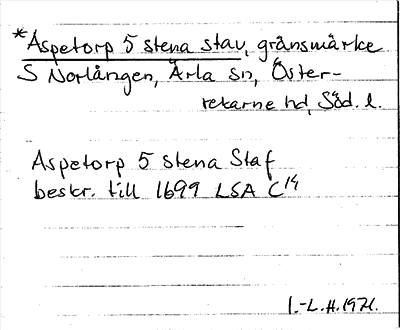 *Aspetorp 5 stena stav, gränsmärke
S Norlången, Ärla sn, Öster-
rekarne hd, Söd. l.
Aspetorp 5 stena Staf
beskr. till 1699 LSA C14
I.-L.H. 1971.